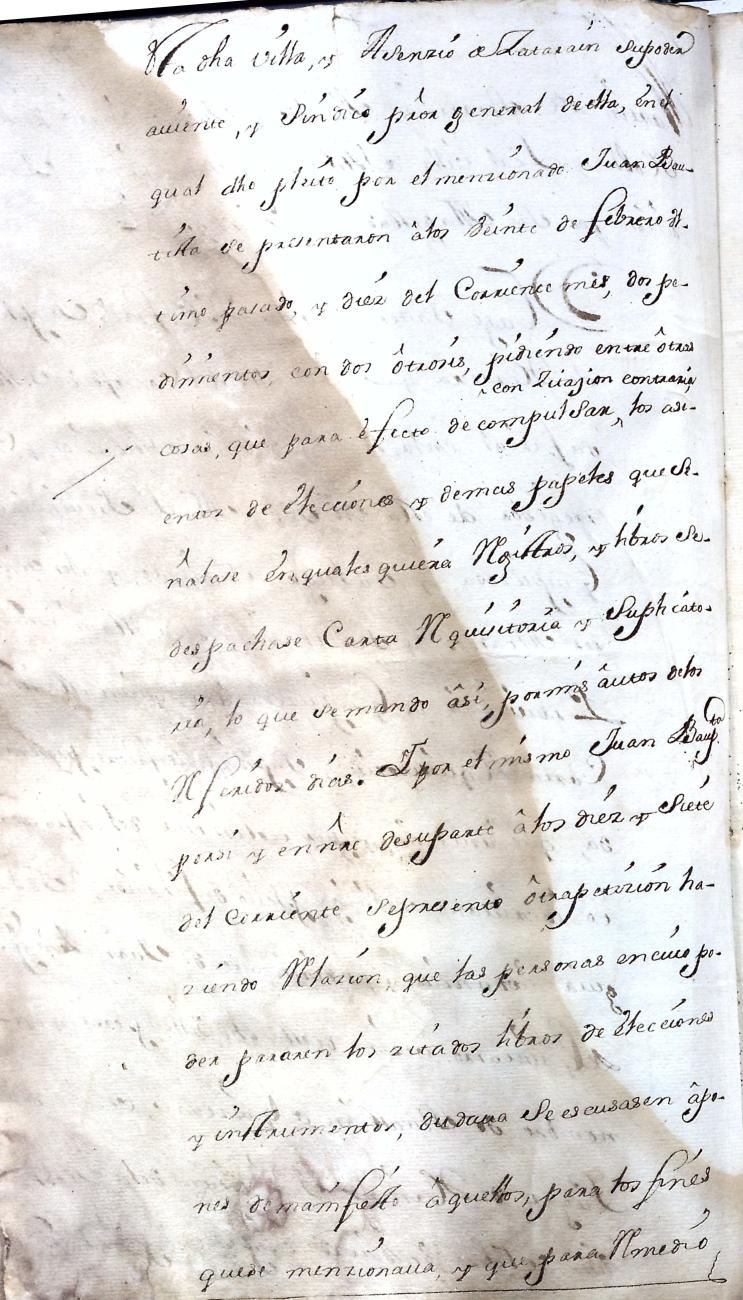 sta dha villa, y Asenzio de Zatarain supoder
aviente, y Síndico prõr general de ella, ên el
qual dho pleito por el menzionado Juan Bau-
tista se presentaron â los Veinte de febrero úl-
timo pasado, y diéz del Corriente mes, dos pe-
dimentos, con dos ôtrosis, pidiendo entre ôtras
con Zitazion contraria,
cosas, que para êfecto de compulsar, los asi-
entos de êlecciones y demas papeles que se-
ñalase ên quales quiera Rĝistros, y libros se-
despachase Carta Rquisitoria y Suplicato-
ria, lo que se mando âsi, por mis âutos de los
Rferidos dias. Y por el mismo Juan Baupta
por si y en nrẽ de su parte â los diéz y Siete
del Corriente se presento ôtra petizion ha-
ziendo Rlazion, que las personas en cuio po-
der pararen los zitados libros de êlecciones
y instrumentos, dudava se escusasen â po-
nes de manifiesto âquellos, para los fines
que de menzionava, y que para Rmedio